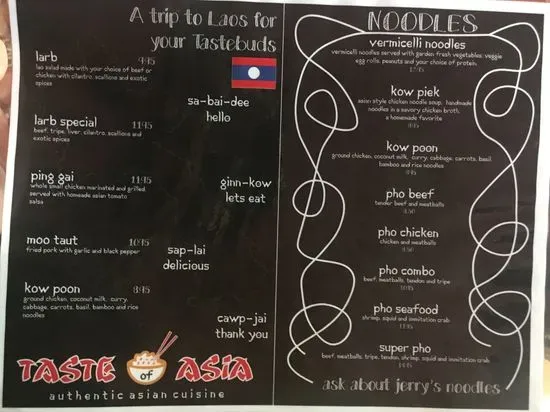 A trip to Laos for
your Tastebuds
larb 9.95
lao salad made with your choice of beef or
chicken with cilantro, scallions and exotic
spices
sa-bai-dee
hello
larb special 11.95
beef, tripe, liver, cilantro, scallions and
exotic spices
ping gai 11.95
whole small chicken marinated and grilled.
served with homeade asian tomato
salsa
ginn-kow
lets eat
moo taut 10.95
fried pork with garlic and black pepper
sap-lai
delicious
kow poon 8.95
ground chicken, coconut milk, curry,
cabbage, carrots, basil, bamboo and rice
noodles
cawp-jai
thank you
TASTE of ASIA
authentic asian cuisine
NOODLES
vermicelli noodles
vermicelli noodles served with garden fresh vegetables, veggie
egg rolls, peanuts and your choice of protein.
kow piek
asian style chicken noodle soup. handmade
noodles in a savory chicken broth.
a homemade favorite
kow poon
ground chicken, coconut milk, curry, cabbage, carrots, basil,
bamboo and rice noodles
pho beef
tender beef and meatballs
pho chicken
chicken and meatballs
pho combo
beef, meatballs, tendon and tripe
pho seafood
shrimp, squid and immitation crab
super pho
beef, meatballs, tripe, tendon, shrimp, squid and immitation crab
ask about jerry's noodles